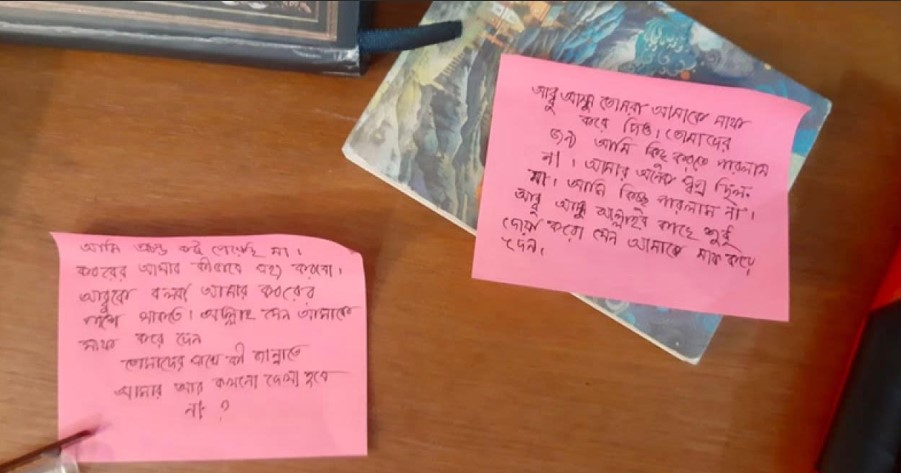 আমি প্রচন্ড কষ্ট পেয়েছি মা।
কবরের আযাব কীভাবে সহ্য করবো।
আব্বুকে বলবা আমার কবরের
পাশে থাকতে। আল্লাহ যেন আমাকে
মাফ করে দেন
তোমাদের সাথে কী জান্নাতে
আমার আর কখনো দেখা হবে
না ?
আব্বু আম্মু তোমরা আমাকে মাফ
করে দিও। তোমাদের
জন্য আমি কিছু করতে পারলাম
না। আমার অনেক স্বপ্ন ছিল
মা। আমি কিছু পারলাম না।
আব্বু আম্মু আল্লাহর কাছে শুধু
দোয়া করো যেন আমাকে মাফ করে
দেন।